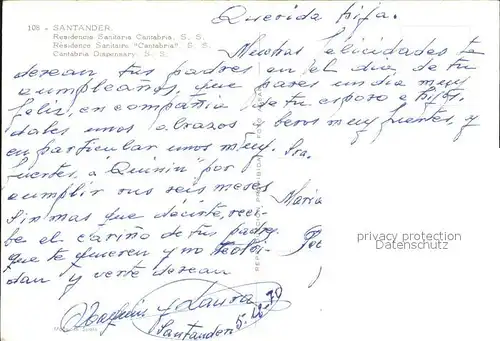 108 - SANTANDER.
Residencia Sanitaria Cantabria. S. S.
Résidence Sanitaire "Cantabria". S. S.
Cantabria Dispensary. S. S.
Querida hija.
Muchas felicidades te
desean tus padres en el dia de tu
cumpleaños, que pases un dia muy
feliz, en compañia de tu esposo e hijos.
dales unos abrazos y besos muy fuertes, y
en particular unos muy
fuertes, a "Quinin" por
cumplir sus seis meses
Sin mas que decirte, reci-
be el cariño de tus padres
que te quieren y no te olvi-
dan y verte desean
Joaquin y Laura
Santander 5-12-70
Sra.
Maria
privacy protection
Datenschutz